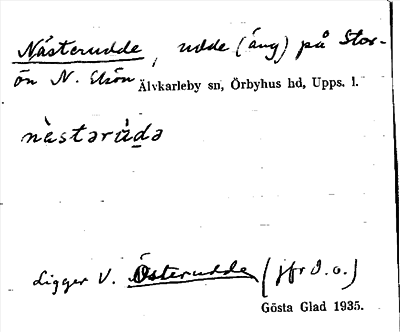 Nästerudde, udde (äng) på Stor-
ön N. Elsön Älvkarleby sn, Örbyhus hd, Upps. l.
nὲstərùdə
Ligger V. Österudde (jfr d. o.)
Gösta Glad 1935.